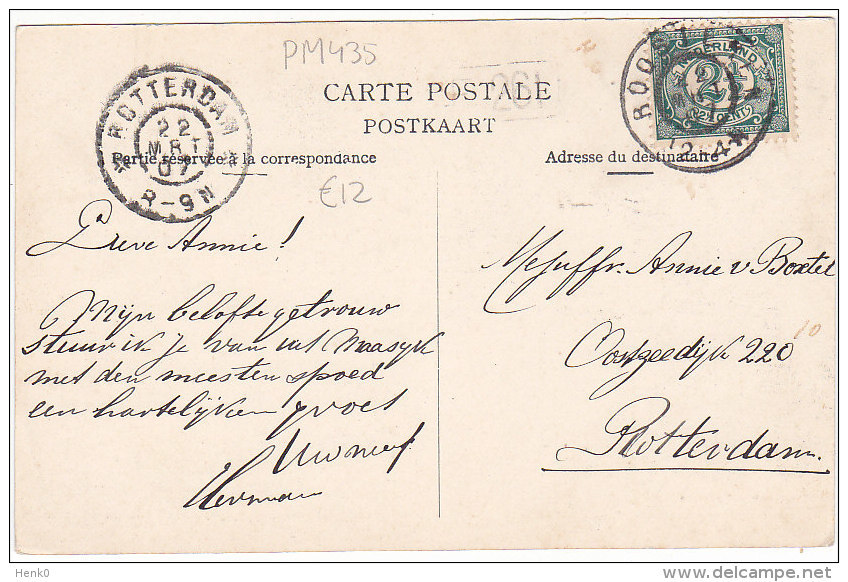 PM435
CARTE POSTALE
POSTKAART
Partie réservée à la correspondance
Adresse du destinataire
ROTTERDAM
22
MRT
07
8-9N
ROOSTE
12-4N
NEDERLAND
2½
2½ CENT
€12
Lieve Annie!
Mijn belofte getrouw
stuur ik je van uit Maasyk
met den meesten spoed
een hartelijken groet
Uw neef
Herman
Mejuffr. Annie v Boxtel
Oostzeedijk 220
10
Rotterdam.
HenkO
delcampe.net